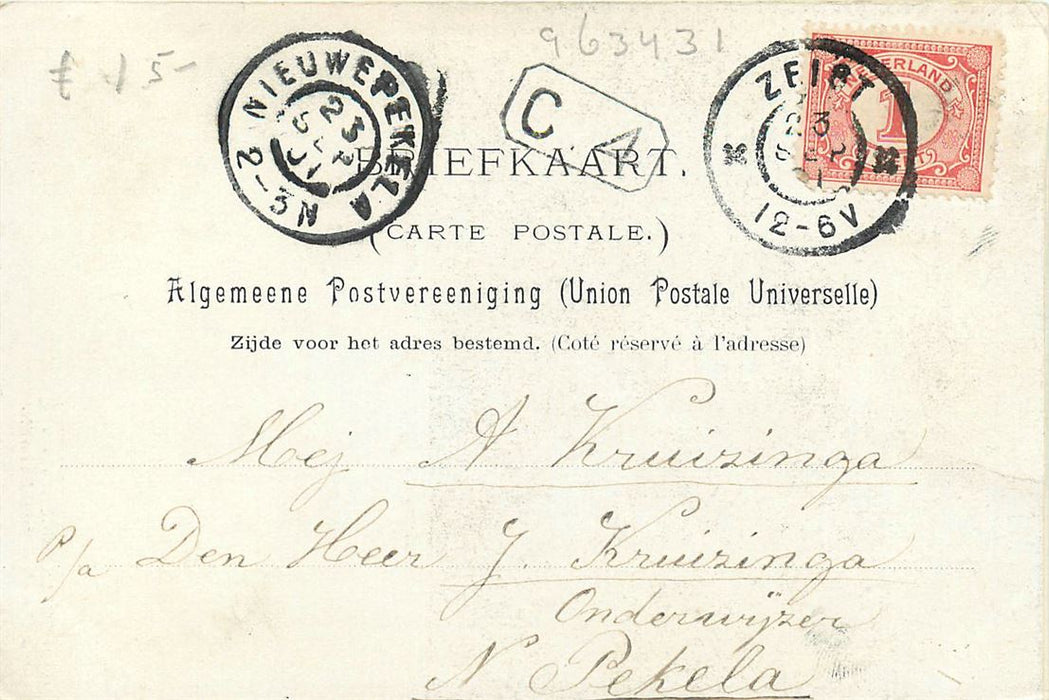 963431
£ 15-
NIEUWEPEKELA
23
SEP
01
2-3N
C
ZEIST
23
SEP
01
12-6V
NEDERLAND
1
CENT
BRIEFKAART.
(CARTE POSTALE.)
Algemeene Postvereeniging (Union Postale Universelle)
Zijde voor het adres bestemd. (Coté réservé à l'adresse)
Mej A Kruizinga
P/a Den Heer J. Kruizinga
Onderwijzer
N Pekela